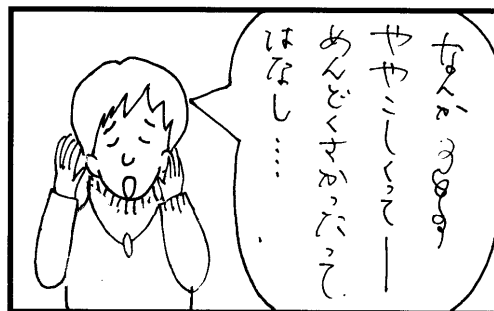 なんか
ややこしくってー
めんどくさかったって
はなし....